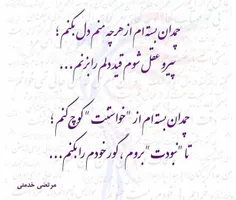 چمدان بسته ام از هرچه منم دل بکنم ؛
پیرو عقل شوم قید دلم را بزنم...
چمدان بسته ام از "خواستنت" کوچ کنم ؛
تا "نبودت" بروم ، گور خودم را بکنم...
مرتضی خدمتی